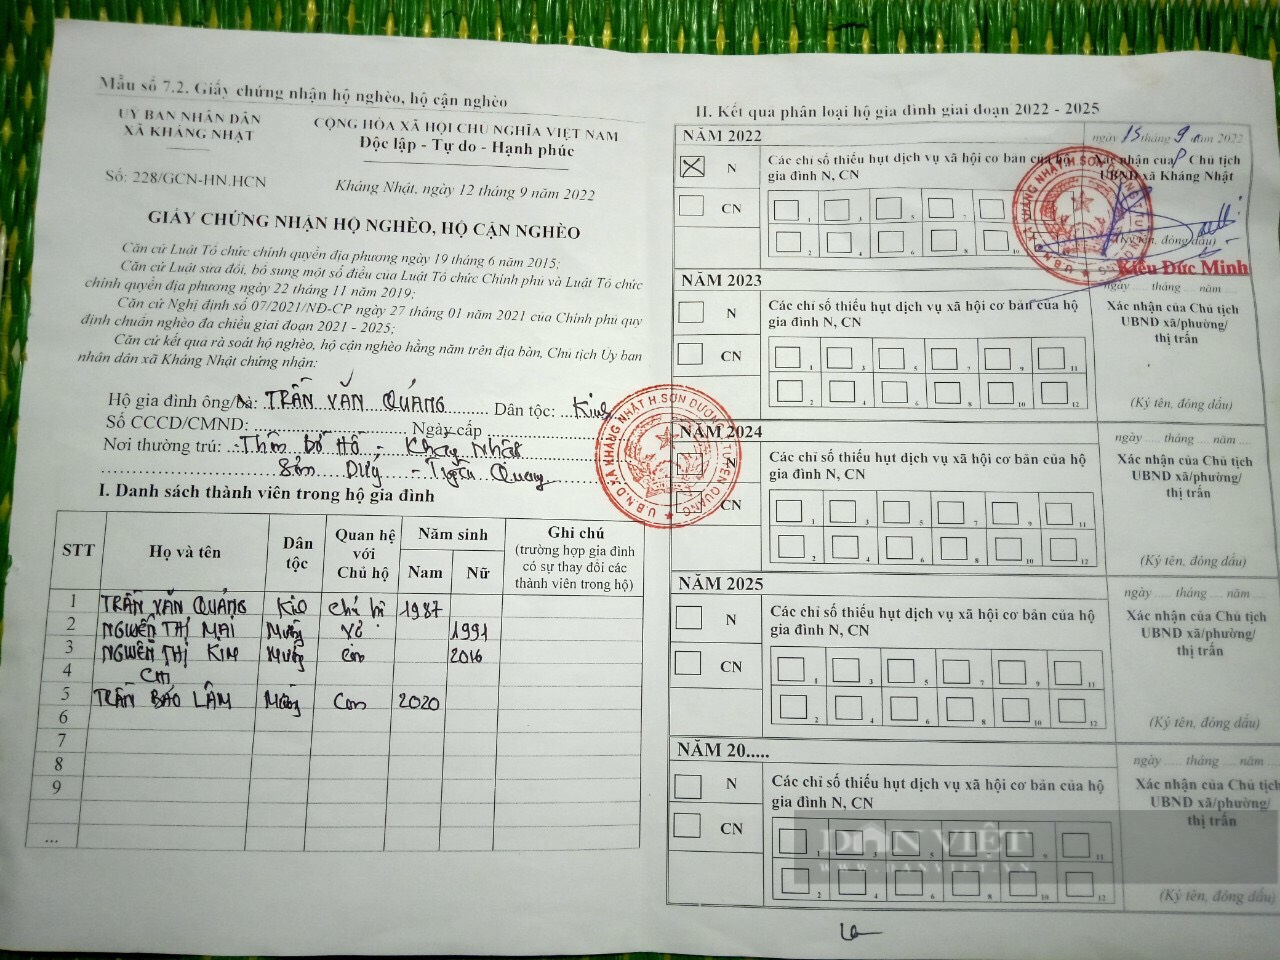 Mẫu số 7.2. Giấy chứng nhận hộ nghèo, hộ cận nghèo
ỦY BAN NHÂN DÂN
XÃ KHÁNG NHẬT
CỘNG HÒA XÃ HỘI CHỦ NGHĨA VIỆT NAM
Độc lập - Tự do - Hạnh phúc
Số: 228/GCN-HN.HCN
Kháng Nhật, ngày 12 tháng 9 năm 2022
GIẤY CHỨNG NHẬN HỘ NGHÈO, HỘ CẬN NGHÈO
Căn cứ Luật Tổ chức chính quyền địa phương ngày 19 tháng 6 năm 2015;
Căn cứ Luật sửa đổi, bổ sung một số điều của Luật Tổ chức Chính phủ và Luật Tổ chức
chính quyền địa phương ngày 22 tháng 11 năm 2019;
Căn cứ Nghị định số 07/2021/NĐ-CP ngày 27 tháng 01 năm 2021 của Chính phủ quy
định chuẩn nghèo đa chiều giai đoạn 2021 - 2025;
Căn cứ kết quả rà soát hộ nghèo, hộ cận nghèo hằng năm trên địa bàn, Chủ tịch Ủy ban
nhân dân xã Kháng Nhật chứng nhận:
Hộ gia đình ông/bà: TRẦN VĂN QUẢNG Dân tộc: Kinh
Số CCCD/CMND: Ngày cấp
Nơi thường trú: Thôn Bờ Hồ - Kháng Nhật
Sơn Dương - Tuyên Quang
I. Danh sách thành viên trong hộ gia đình
STT
Họ và tên
Dân tộc
Quan hệ với Chủ hộ
Năm sinh
Nam
Nữ
Ghi chú
(trường hợp gia đình có sự thay đổi các thành viên trong hộ)
1 TRẦN VĂN QUẢNG Chủ hộ 1987
2 NGUYỄN THỊ MAI Mường Vợ 1991
3 NGUYỄN THỊ KIM Mường con 2016
4 CHI
5 TRẦN BẢO LÂM Mường Con 2020
6
7
8
9
...
II. Kết quả phân loại hộ gia đình giai đoạn 2022 - 2025
NĂM 2022
ngày 15 tháng 9 năm 2022
N
CN
Các chỉ số thiếu hụt dịch vụ xã hội cơ bản của hộ
gia đình N, CN
1 3 5 7
2 4 6 8 10
Xác nhận của Chủ tịch
UBND xã Kháng Nhật
(Ký tên, đóng dấu)
Kiều Đức Minh
U.B.N.D XÃ KHÁNG NHẬT H.SƠN DƯƠNG T.TUYÊN QUANG
NĂM 2023
ngày ..... tháng .... năm ....
N
CN
Các chỉ số thiếu hụt dịch vụ xã hội cơ bản của hộ
gia đình N, CN
1 3 5 7 9 11
2 4 6 8 10 12
Xác nhận của Chủ tịch
UBND xã/phường/
thị trấn
(Ký tên, đóng dấu)
U.B.N.D XÃ KHÁNG NHẬT H.SƠN DƯƠNG T.TUYÊN QUANG
NĂM 2024
ngày ..... tháng .... năm ....
N
CN
Các chỉ số thiếu hụt dịch vụ xã hội cơ bản của hộ
gia đình N, CN
1 3 5 7 9 11
2 4 6 8 10 12
Xác nhận của Chủ tịch
UBND xã/phường/
thị trấn
(Ký tên, đóng dấu)
NĂM 2025
ngày ..... tháng .... năm ....
N
CN
Các chỉ số thiếu hụt dịch vụ xã hội cơ bản của hộ
gia đình N, CN
1 3 5 7 9 11
2 4 6 8 10 12
Xác nhận của Chủ tịch
UBND xã/phường/
thị trấn
(Ký tên, đóng dấu)
NĂM 20.....
ngày ..... tháng .... năm ....
N
CN
Các chỉ số thiếu hụt dịch vụ xã hội cơ bản của hộ
gia đình N, CN
1 3 5 7 9 11
2 4 6 8 10 12
Xác nhận của Chủ tịch
UBND xã/phường/
thị trấn
(Ký tên, đóng dấu)
DÂN VIỆT
WWW.DANVIET.VN